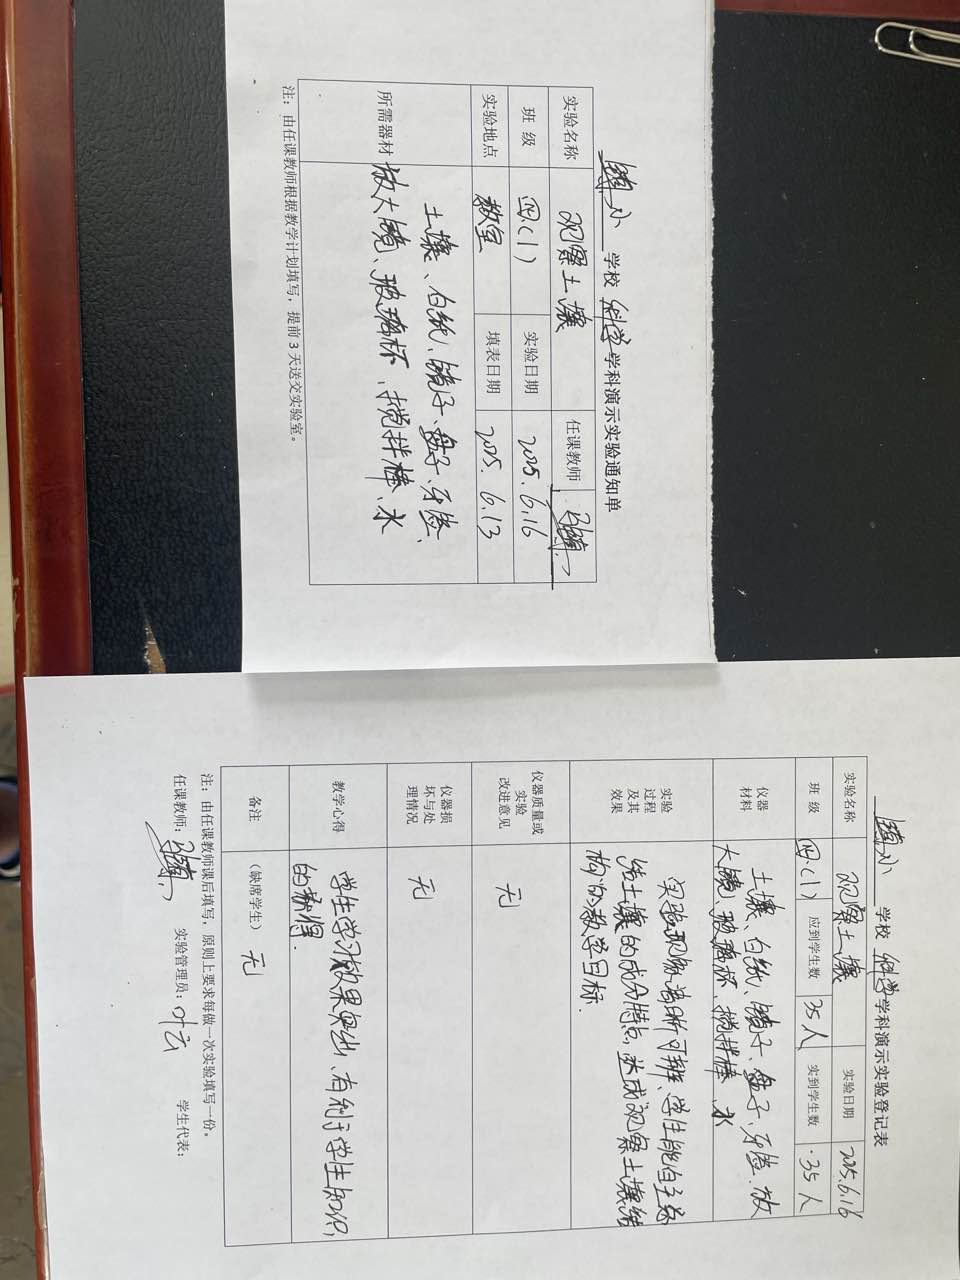 学校 科学学科演示实验通知单
实验名称 观察土壤 任课教师
班 级 四(1) 实验日期 2025.6.16
实验地点 教室 填表日期 2025.6.13
所需器材 土壤、白纸、镊子、盘子、牙签、
放大镜、玻璃杯、搅拌棒、水
注:由任课教师根据教学计划填写,提前3天送交实验室。
学校 科学学科演示实验登记表
实验名称 观察土壤 实验日期 2025.6.16
班 级 四(1) 应到学生数 35人 实到学生数 35人
仪器
材料
土壤、白纸、镊子、盘子、牙签、放
大镜、玻璃杯、搅拌棒、水
实验
过程
及其
效果
实验现象清晰可辨、学生能自主总
结土壤的成分特点,达成观察土壤结
构的教学目标.
仪器质量或
实验
改进意见
无
仪器损
坏与处
理情况
无
教学心得
学生学习效果突出、有利于学生知识
的获得.
备注 (缺席学生) 无
注:由任课教师课后填写,原则上要求每做一次实验填写一份。
任课教师: 实验管理员:叶云 学生代表: